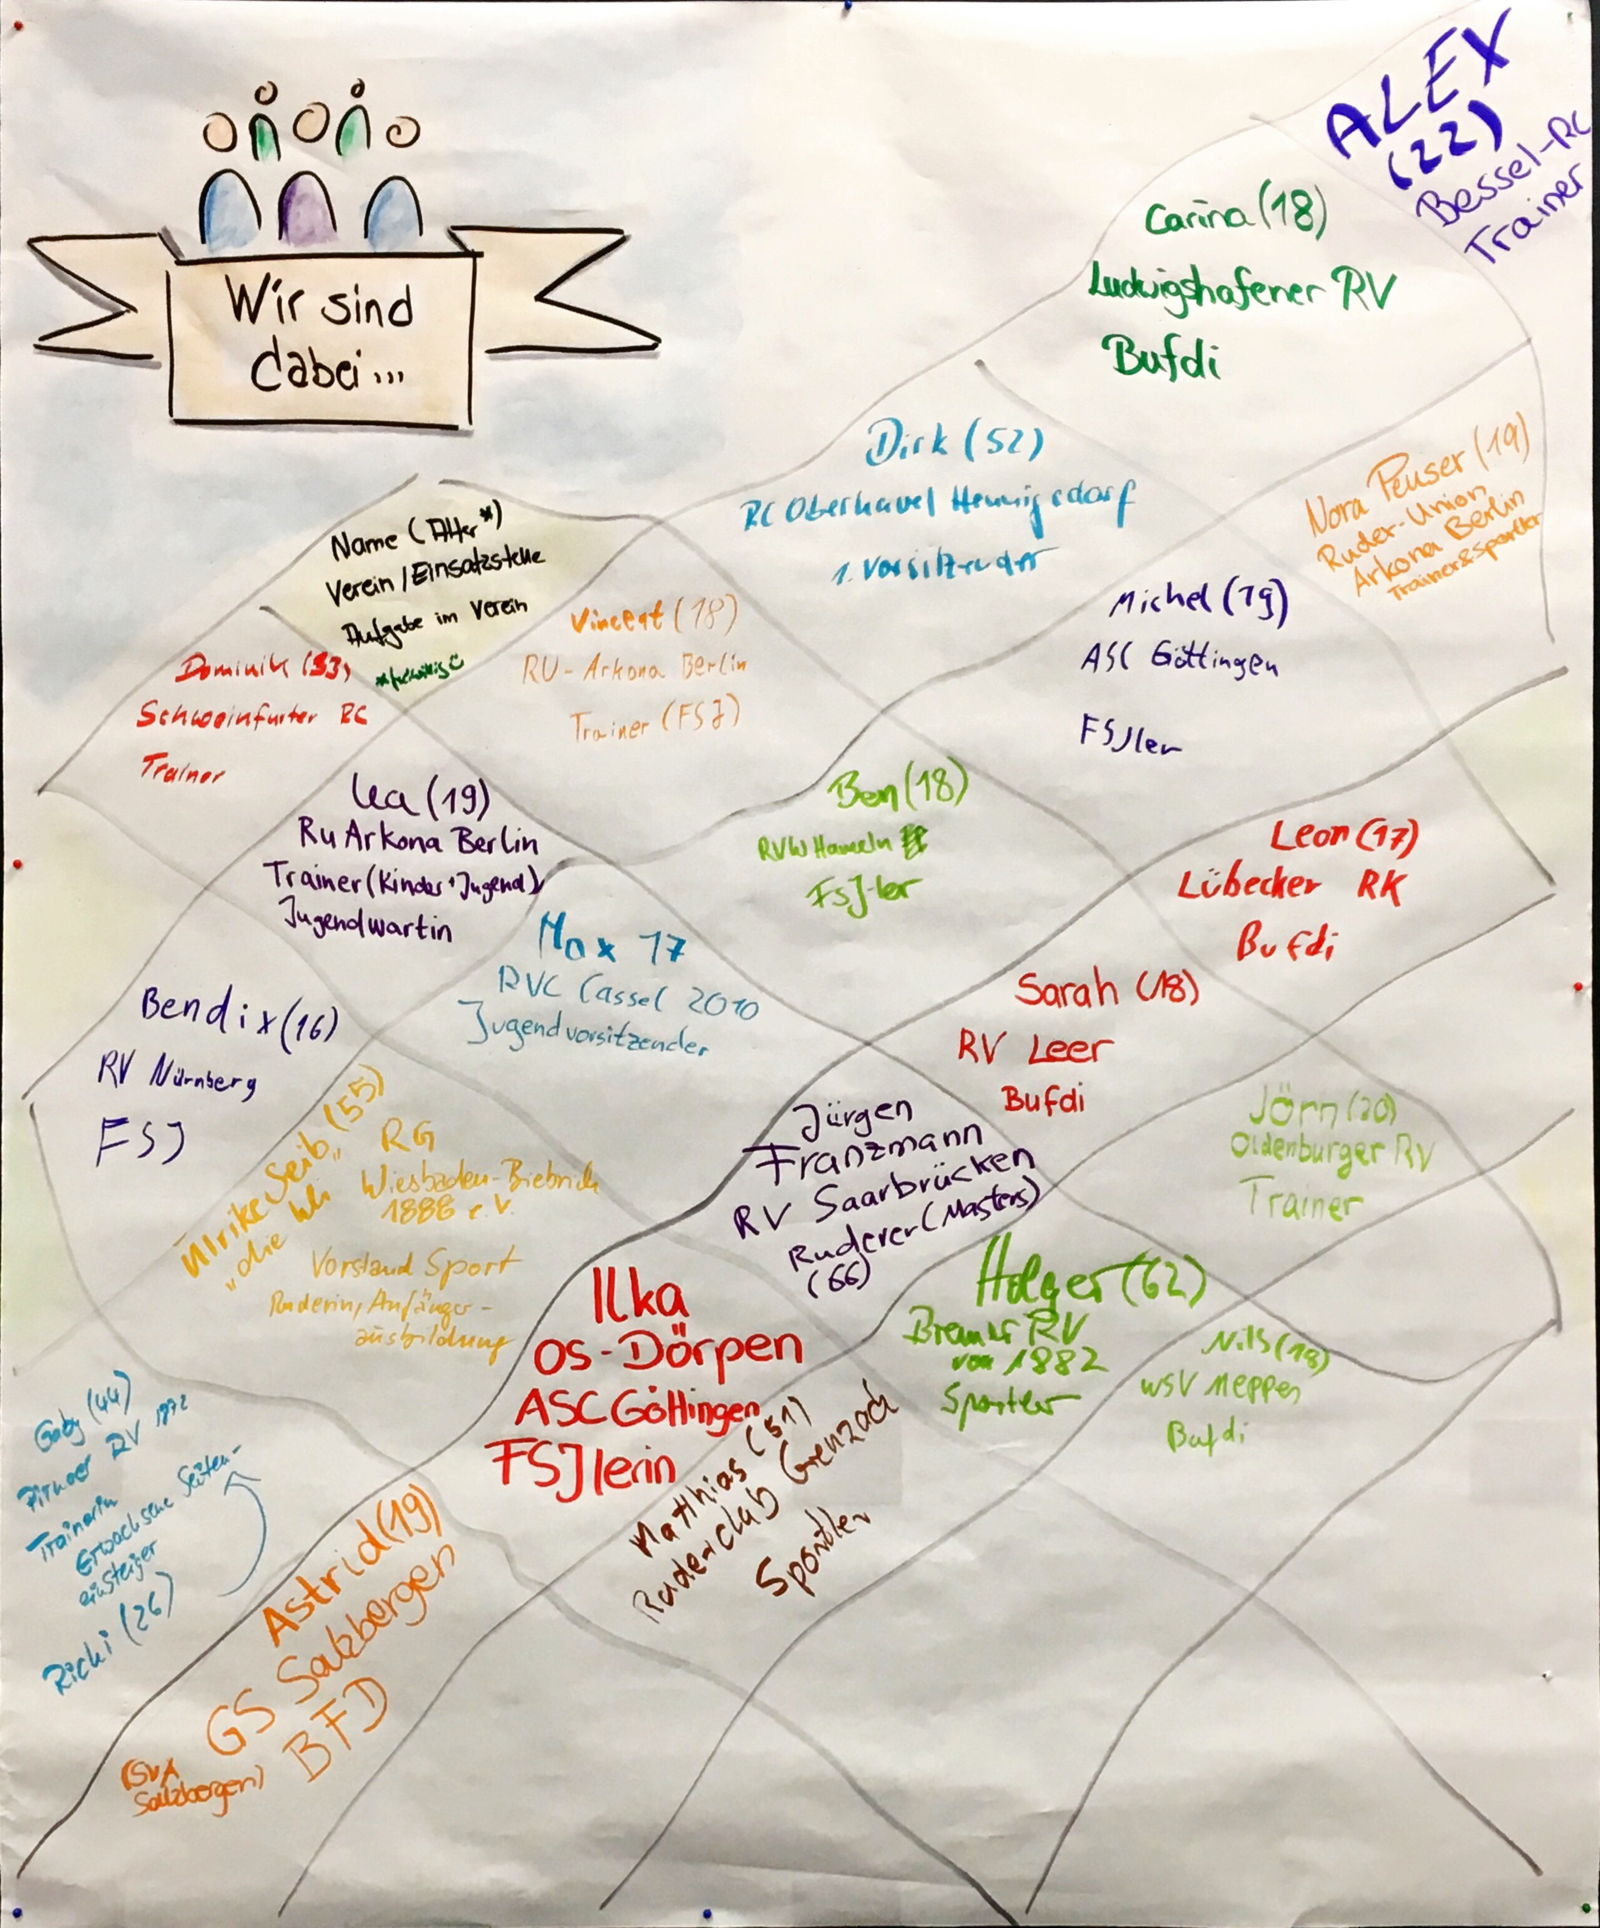 Wir sind
dabei...
ALEX
(22)
Bessel-RC
Trainer
Carina (18)
Ludwigshafener RV
Bufdi
Dirk (52)
RC Oberhavel Hennigsdorf
1. Vorsitzender
Nora Peuser (19)
Ruder-Union
Arkona Berlin
Trainer&Sportler
Name (Alter*)
Verein / Einsatzstelle
Aufgabe im Verein
*freiwillig
Vincent (18)
RU-Arkona Berlin
Trainer (FSJ)
Michel (19)
ASC Göttingen
FSJler
Dominik (33)
Schweinfurter RC
Trainer
Lea (19)
Ru Arkona Berlin
Trainer (Kinder+Jugend)
Jugendwartin
Ben (18)
RVW Hameln
FSJ-ler
Leon (17)
Lübecker RK
Bufdi
Max 17
RVC Cassel 2010
Jugendvorsitzender
Sarah (18)
RV Leer
Bufdi
Bendix (16)
RV Nürnberg
FSJ
Ulrike Seib (55)
"die Uli"
RG
Wiesbaden-Biebrich
1888 e.V.
Vorstand Sport
Ruderin, Anfänger-
ausbildung
Jürgen
Franzmann
RV Saarbrücken
Ruderer (Masters)
(66)
Jörn (20)
Oldenburger RV
Trainer
Ilka
OS-Dörpen
ASC Göttingen
FSJlerin
Holger (62)
Bremer RV
von 1882
Sportler
Nils (18)
WSV Meppen
Bufdi
Gaby (44)
Pirnaer RV 1872
Trainerin
Erwachsene Seiten-
einsteiger
Richi (26)
Matthias (51)
Ruderclub Grenzach
Sportler
Astrid (19)
GS Salzbergen
BFD
(SVA
Salzbergen)